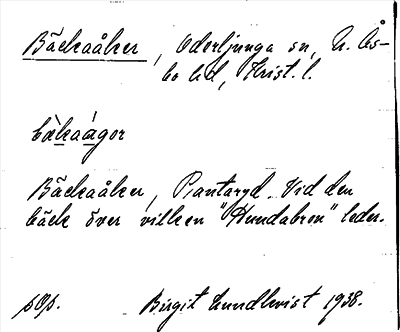 Bäckaåker, Oderljunga sn, N. Ås-
bo hd, Krist. l.
bækaágor
Bäckaåker, Pantaryd. Vid den
bäck över vilken "Hundabron" leder.
sOp. Birgit Lundkvist 1938.